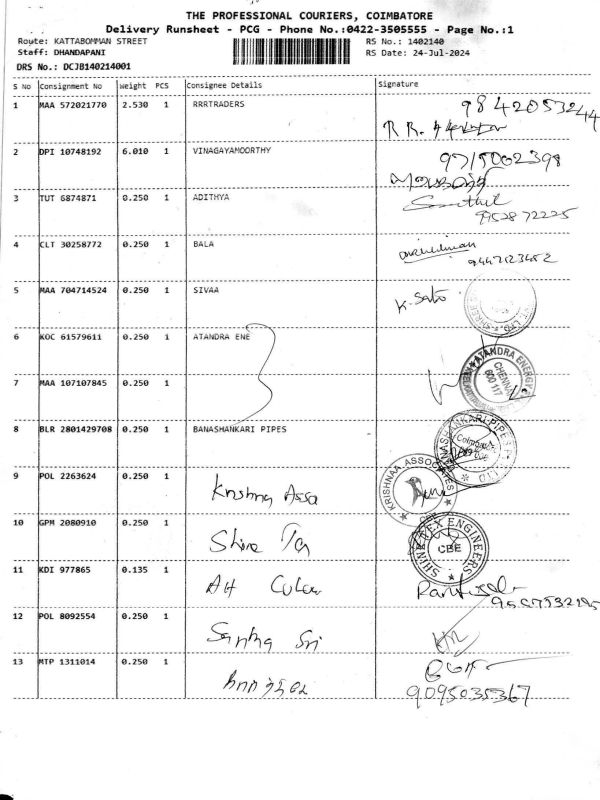 THE PROFESSIONAL COURIERS, COIMBATORE
Delivery Runsheet - PCG - Phone No.:0422-3505555 - Page No.:1
Route: KATTABOMMAN STREET
Staff: DHANDAPANI
DRS No.: DCJB140214001
RS No.: 1402140
RS Date: 24-Jul-2024
S No Consignment No Weight PCS Consignee Details Signature
1 MAA 572021770 2.530 1 RRRTRADERS 9842053244
R R.
2 DPI 10748192 6.010 1 VINAGAYAMOORTHY 9715002398
3 TUT 6874871 0.250 1 ADITHYA
9952872225
4 CLT 30258772 0.250 1 BALA
9447123452
5 MAA 704714524 0.250 1 SIVAA
6 KOC 61579611 0.250 1 ATANDRA ENE
ATANDRA ENERGY
CHENNAI
600 117
7 MAA 107107845 0.250 1
8 BLR 2801429708 0.250 1 BANASHANKARI PIPES
BANASHANKARI PIPES
9 POL 2263624 0.250 1 Krishna Asso
KRISHNAA ASSOCIATES
CBE
10 GPM 2080910 0.250 1 Shine
ENGINEERS
CBE
11 KDI 977865 0.135 1 AH Colou
9587532195
12 POL 8092554 0.250 1 Sri
13 MTP 1311014 0.250 1
9095035367